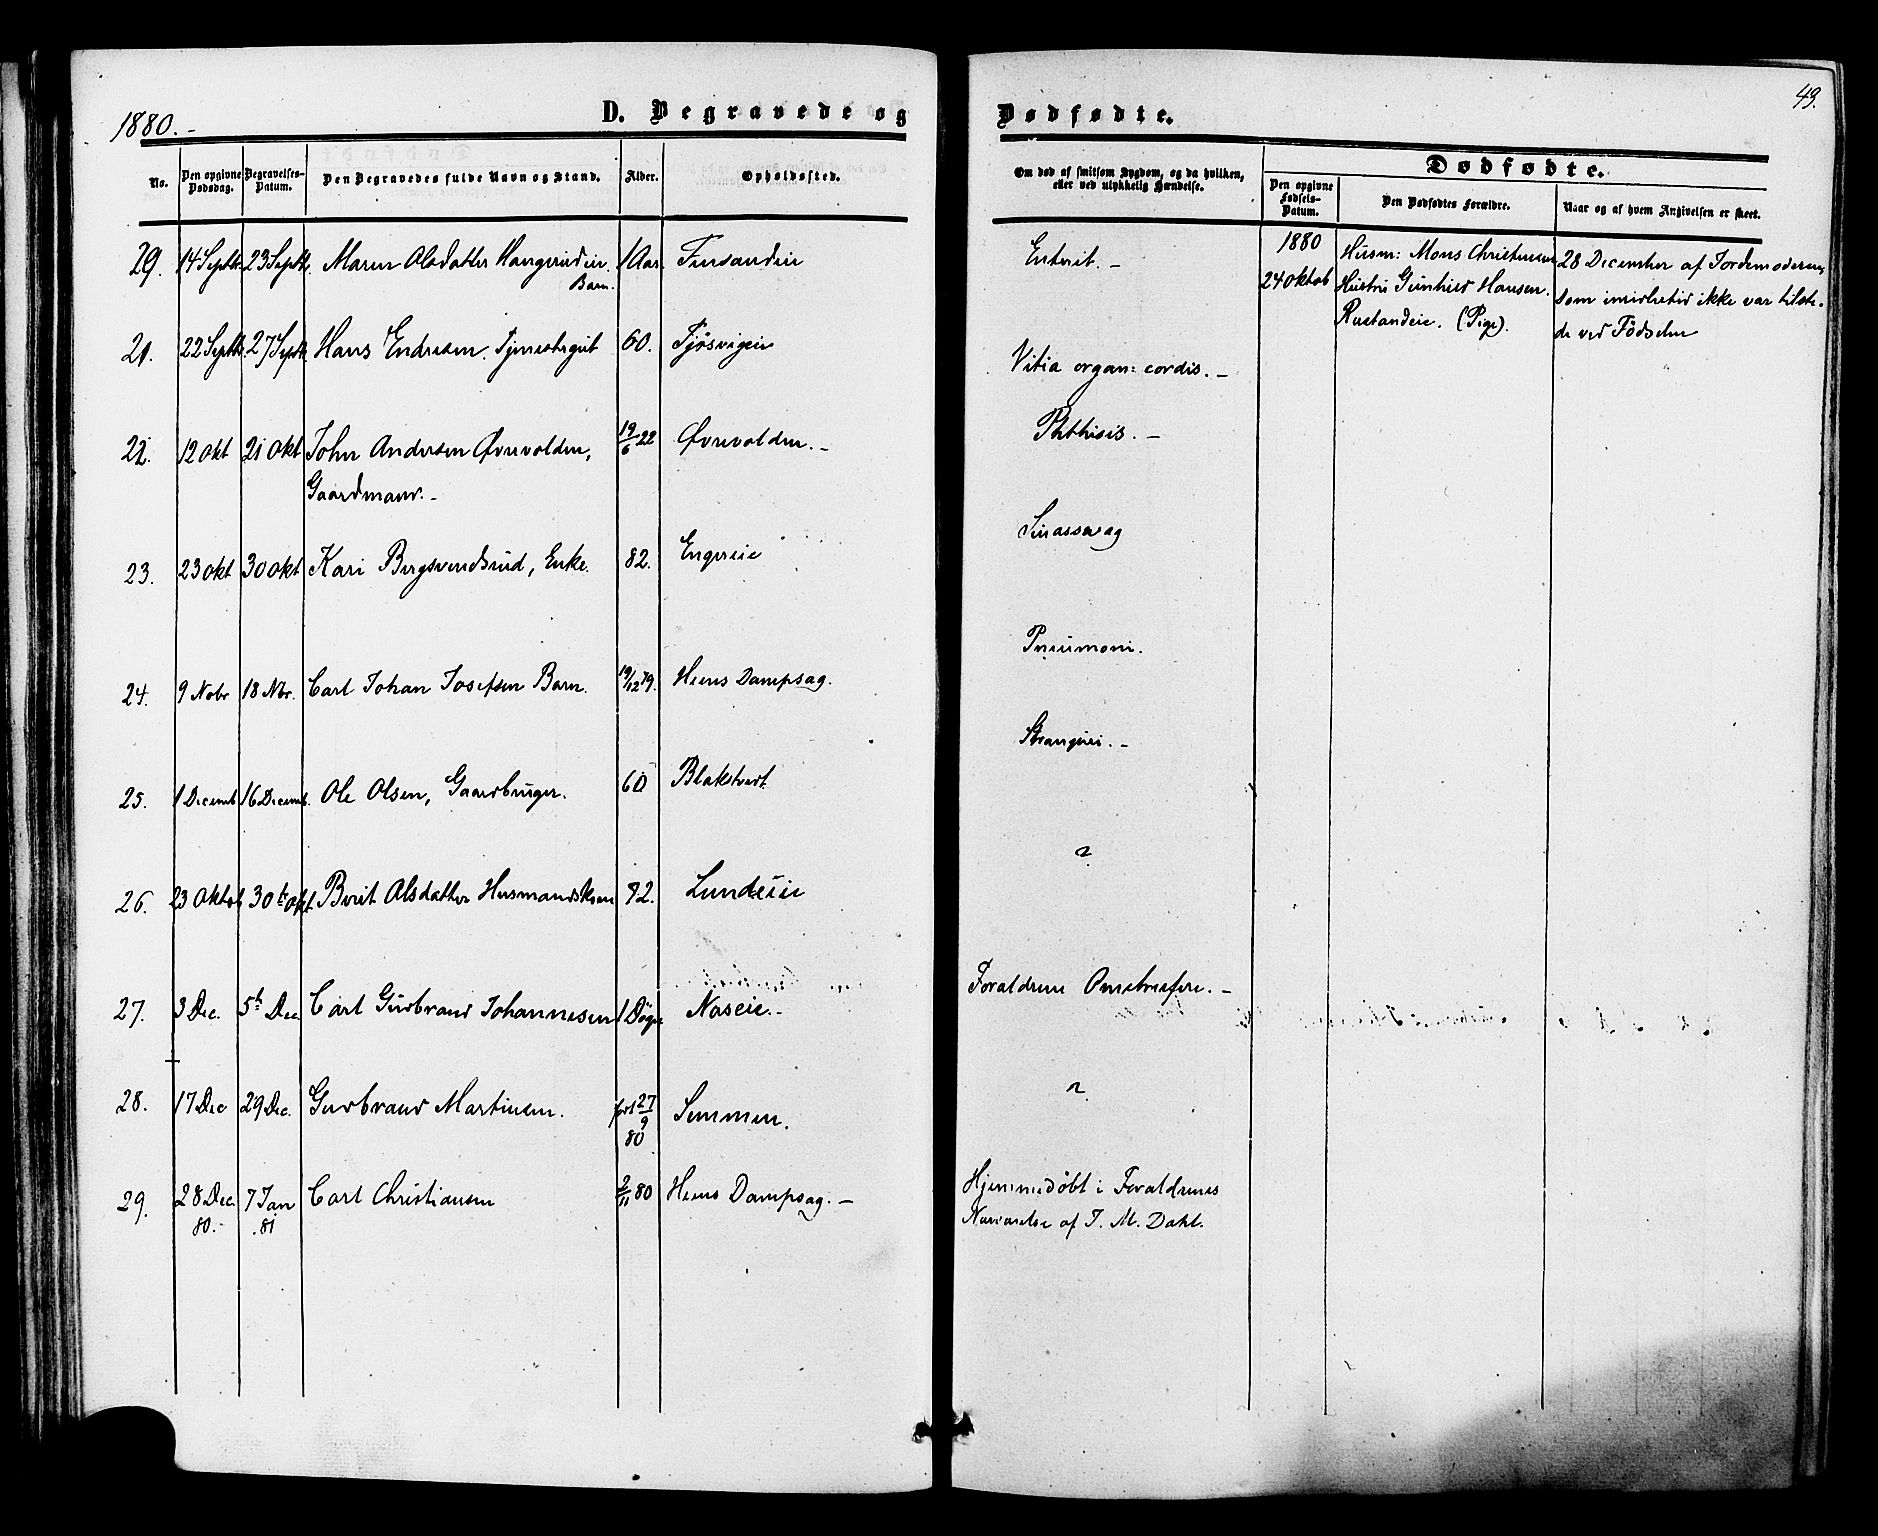 1880.-
D. Begravede og
Dødfødte.
43.
No.
Den opgivne Dødsdag.
Begravelses-Datum.
Den Begravedes fulde Navn og Stand.
Alder.
Opholdssted.
Om død af smitsom Sygdom, og da hvilken, eller ved ulykkelig Hændelse.
Dødfødte.
Den opgivne Fødsels-Datum.
Den Dødfødtes Forældre.
Naar og af hvem Angivelsen er skeet.
29. 14 Septb. 23 Septb. Maren Olsdatter Barn. 1 Aar. Finsandeie
Enterit. -
1880
24 Oktob
Husm: Mons Christensen
Hustru Gunhild Hansen.
Rustandeie. (Pige).
28 December af Jordemoderen,
som imidlertid ikke var tilste-
de ved Fødselen
21. 22 Septb. 27 Septb. Hans Endresen. Tjenestegut 60. Tjøsvigeie
Vitia organ: cordis. -
22. 12 Okt 21 Okt John Andersen Øvrevolden,
Gaardmand. -
19/6 22 Øvrevolden. -
Phthisis. -
23. 23 Okt 30 Okt Kari Bergsvendsrud, Enke. 82. Engereie
24. 9 Novbr 18 Nbr. Carl Johan Josefsen Barn. 19/12 79. Heens Dampsag.
Pneumoni.
25. 1 Decemb 16 Decemb. Ole Olsen, Gaardbruger. 60 Blakstvedt
26. 23 Oktob 30te Okt. Berit Olsdatter Husmandskone 82. Lundeie
27. 3 Dec. 5te Dec. Carl Gudbrand Johannesen 1 Døgn Naseie. -
Forældrene Omstreifere. -
28. 17 Dec 29 Dec. Gudbrand Martinsen. født 27/9 80 Semmen.
29. 28 Dec. 80. 7 Jan 81 Carl Christiansen 2/11 80 Heens Dampsag. -
Hjemmedøbt i Forældrenes
Nærværelse af J. M. Dahl.